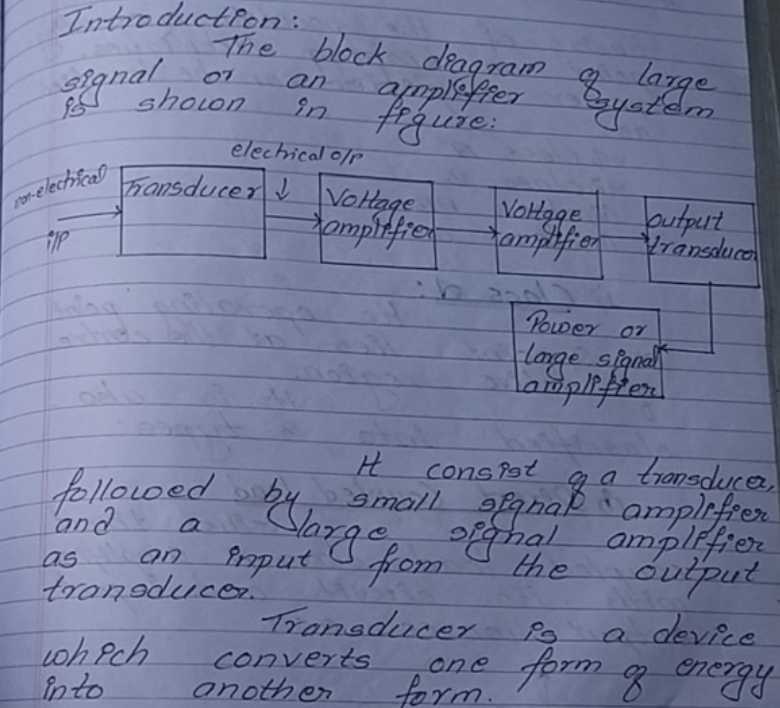 Introduction:
The block diagram of large
signal or an amplifier system
is shown in figure:
electrical o/p
non-electrical
i/p
Transducer
↓
Voltage
amplifier
Voltage
amplifier
output
transducer
Power or
large signal
amplifier
It consist of a transducer,
followed by small signal amplifier
and a large signal amplifier
as an input from the output
transducer.
Transducer is a device
which converts one form of energy
into another form.